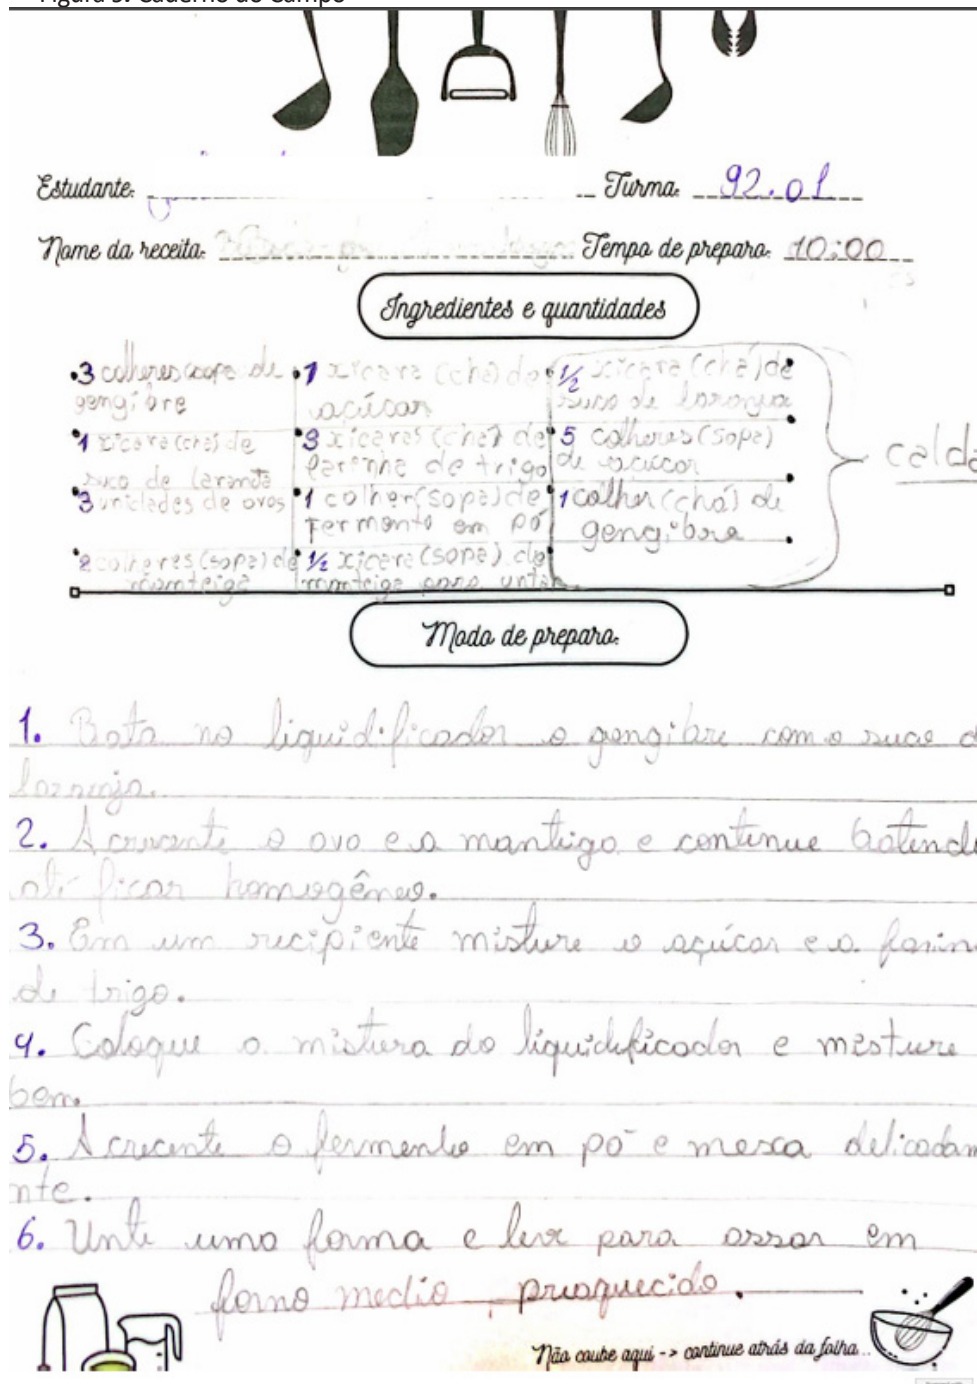 Figura 5. Caderno do Campo
Estudante: Turma: 92.01
Nome da receita: Tempo de preparo: 10:00
Ingredientes e quantidades
•3 colheres sopa de
gengibre
•1 xicara (cha) de
suco de laranja
•3 unidades de ovos
•2 colheres (sopa) de
manteiga
•1 xicara (cha) de
açúcar
•3 xicaras (cha) de
farinha de trigo
•1 colher (sopa) de
fermento em pó
•1/2 xicara (sopa) de
manteiga para untar
•1/2 xicara (chá) de
suco de laranja
•5 colheres (sopa)
de açúcar
•1 colher (chá) de
gengibre
calda
Modo de preparo:
1. Bata no liquidificador o gengibre com o suco d
laranja.
2. Acrecente o ovo e a manteiga e continue batend
até ficar homogêneo.
3. Em um recipiente misture o açúcar e a farin
de trigo.
4. Coloque a mistura do liquidificador e misture
bem.
5. Acrecente o fermento em pó e mexa delicadam
nte.
6. Unte uma forma e leve para assar em
forno medio, preaquecido.
Não coube aqui -> continue atrás da folha...